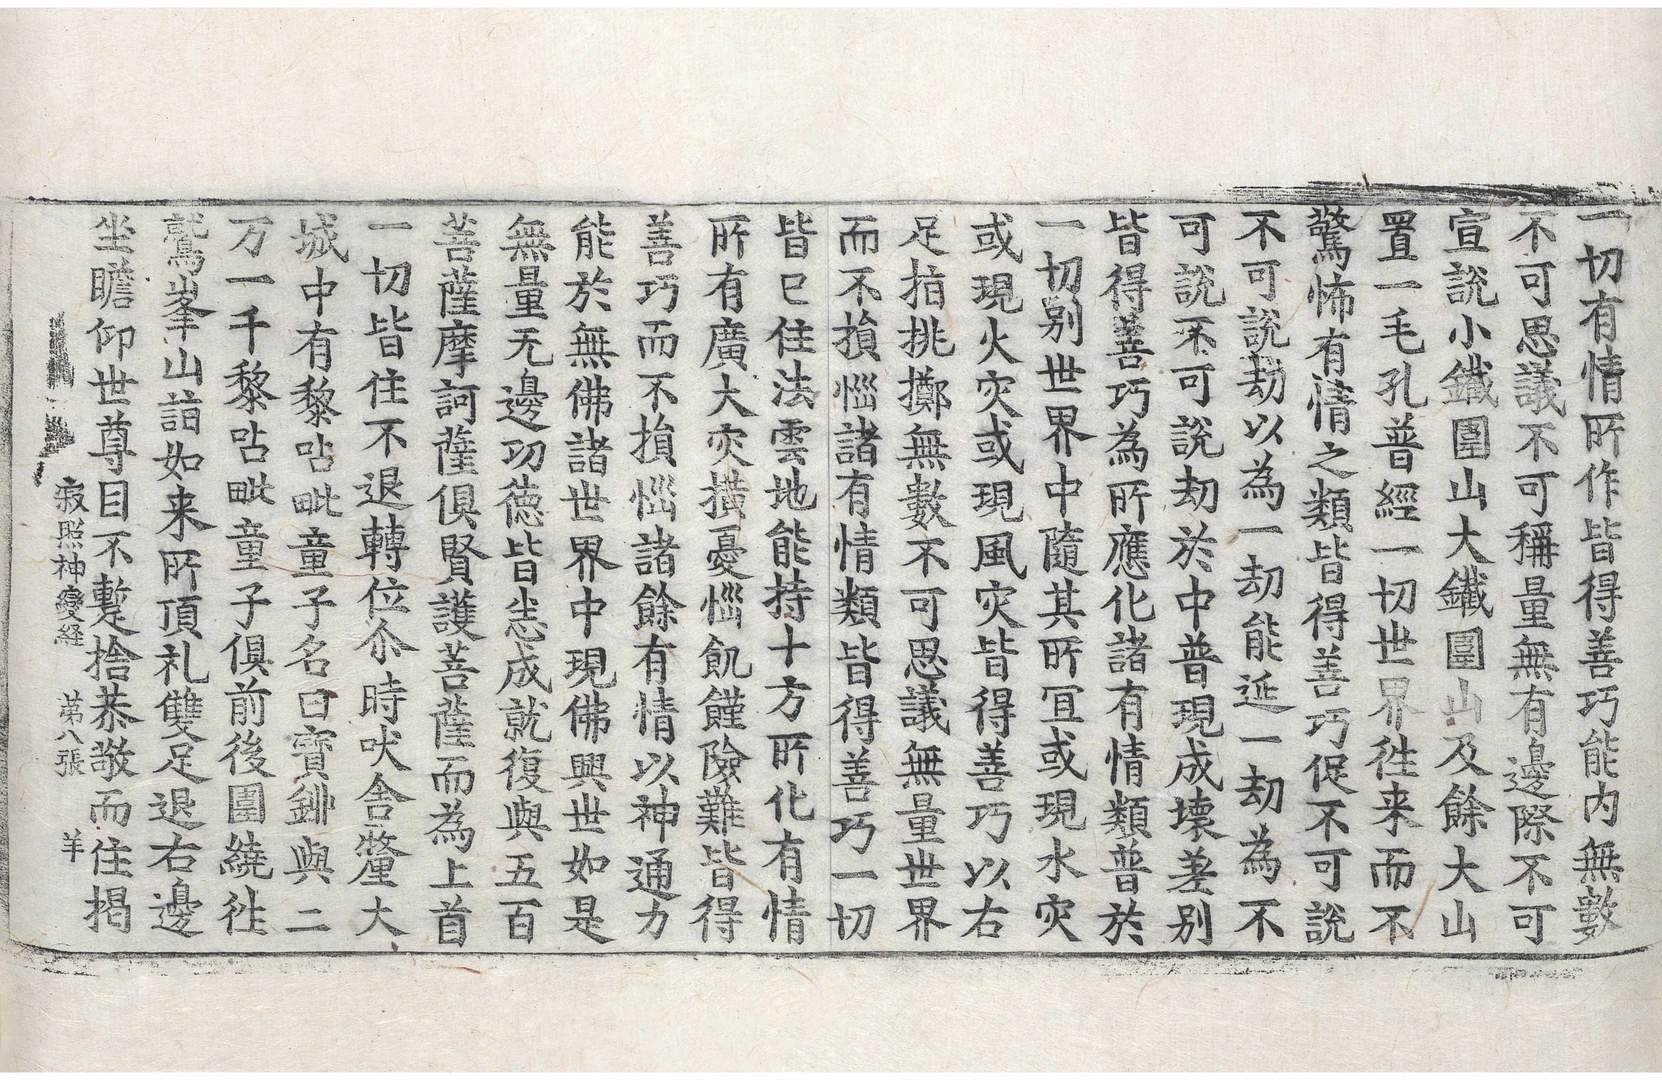 一切有情所作皆得善巧能內無數
不可思議不可稱量無有邊際不可
宣說小鐵圍山大鐵圍山及餘大山
置一毛孔普經一切世界徃来而不
驚怖有情之類皆得善巧促不可說
不可說劫以為一劫能延一劫為不
可說不可說劫於中普現成壞差别
皆得善巧為所應化諸有情類普於
一切别世界中隨其所宜或現水灾
或現火灾或現風灾皆得善巧以右
足拍挑擲無數不可思議無量世界
而不損惱諸有情類皆得善巧一切
皆已住法雲地能持十方所化有情
所有廣大灾橫憂惱飢饉險難皆得
善巧而不損惱諸餘有情以神通力
能於無佛諸世界中現佛興世如是
無量无邊功德皆悉成就復與五百
菩薩摩訶薩俱賢護菩薩而為上首
一切皆住不退轉位尒時吠舍釐大
城中有黎呫毗童子名曰寶銔與二
万一千黎呫毗童子俱前後圍繞徃
鷲峯山詣如来所頂礼雙足退右邊
坐瞻仰世尊目不蹔捨恭敬而住揭
寂照神變経 苐八張 羊